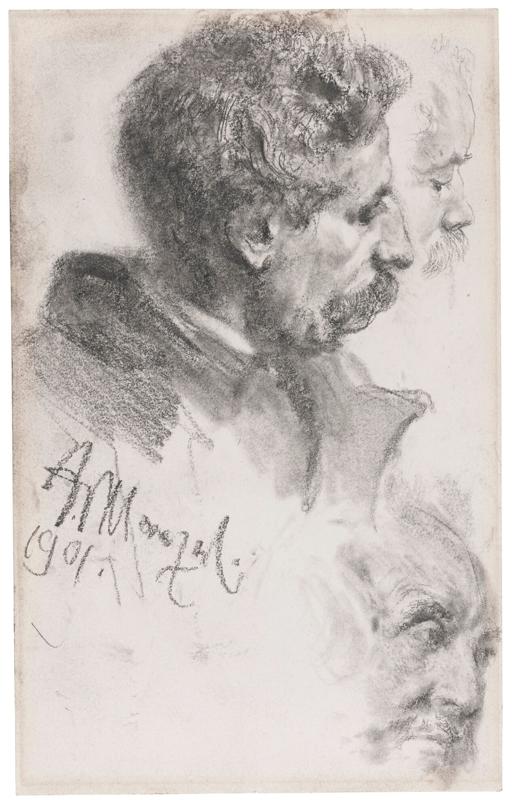 A. v. Menzel.
1901.